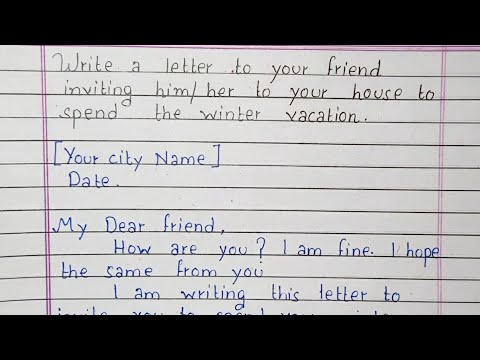 Write a letter to your friend
inviting him/her to your house to
spend the winter vacation.
[Your city Name]
Date.
My Dear friend,
How are you? I am fine. I hope
the same from you
I am writing this letter to
invite you to spend your